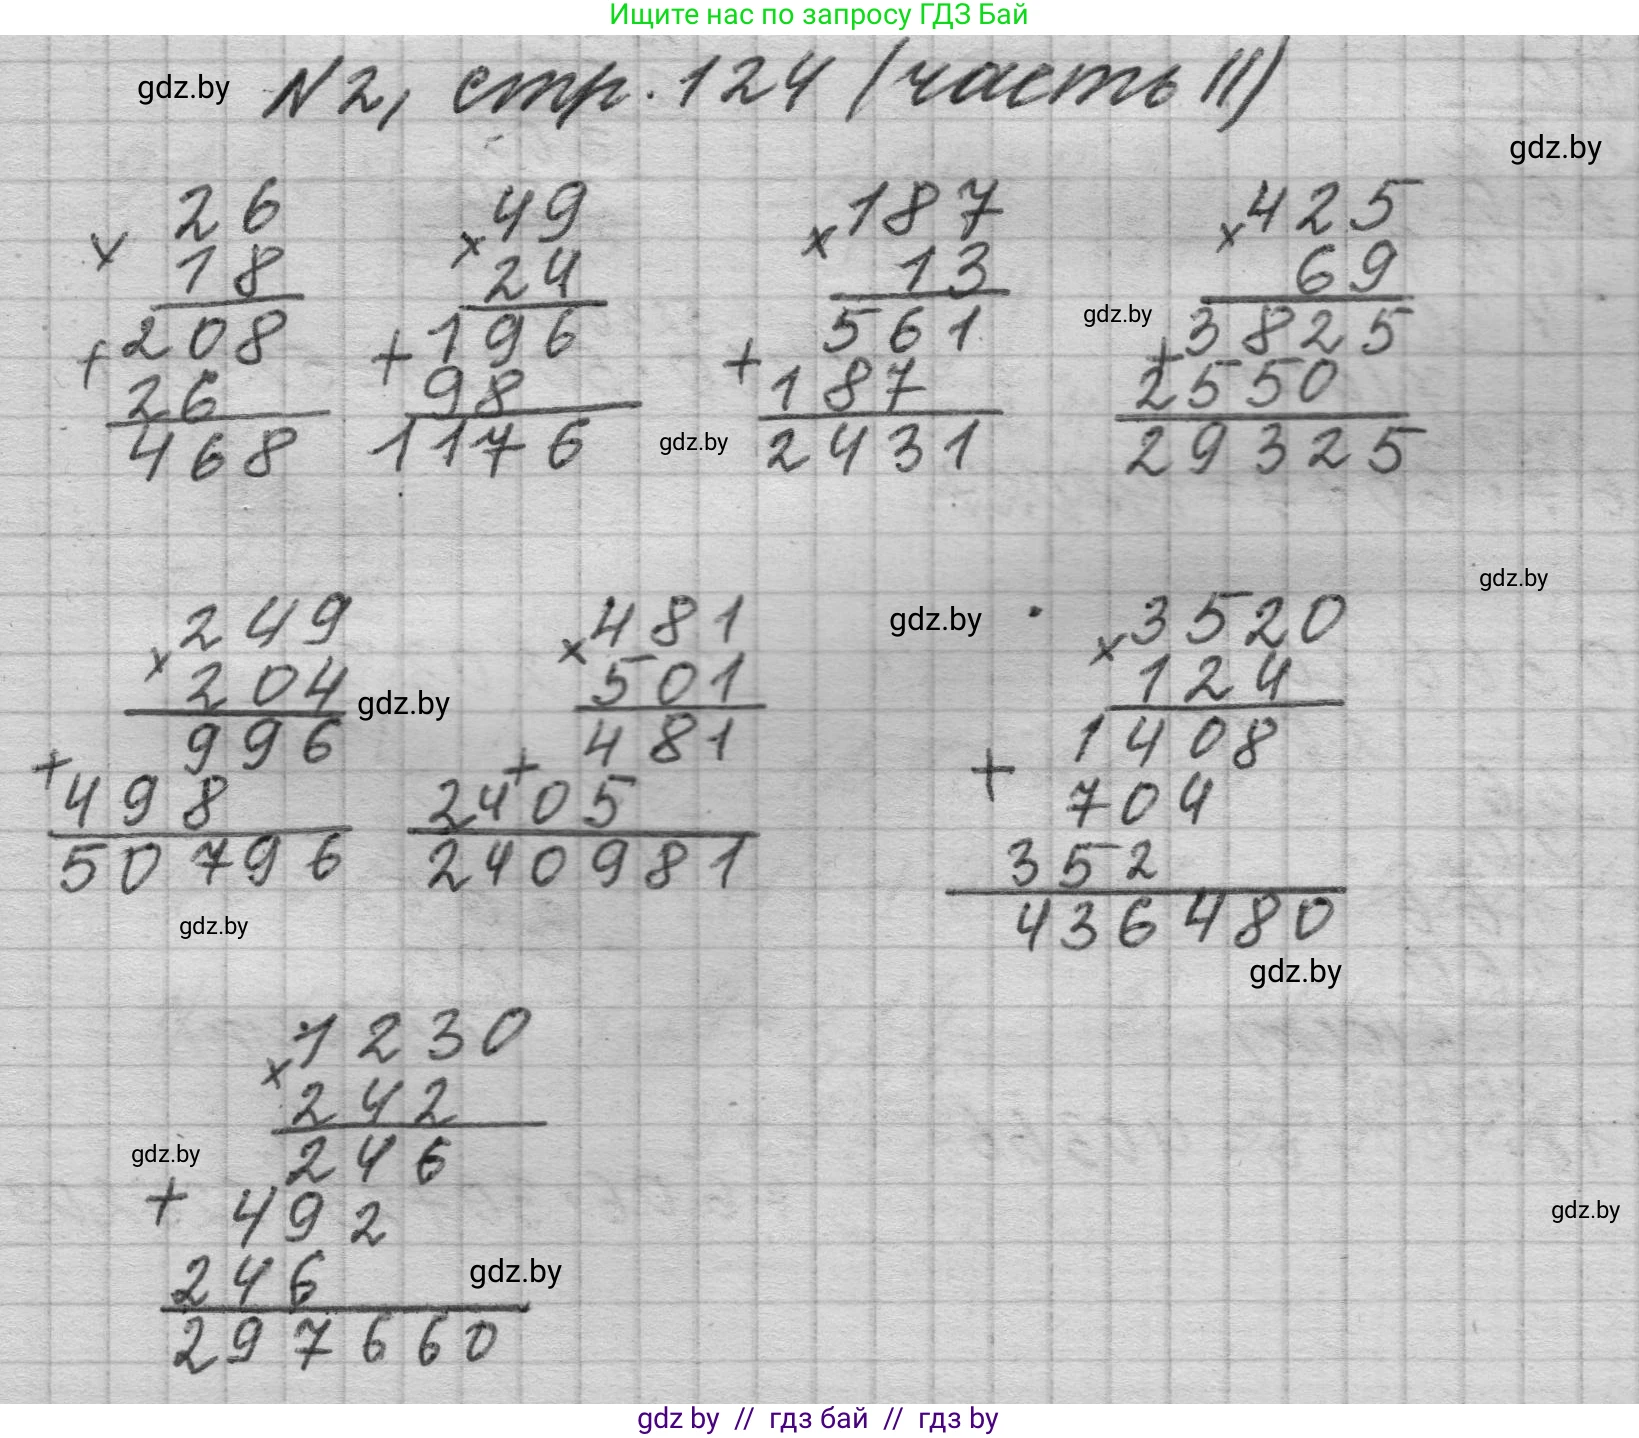 Ищите нас по запросу ГДЗ Бай
gdz.by N2, стр. 124 (часть II)
gdz.by
26 49 187 425
× 18 × 24 × 13 × 69
gdz.by
+ 208 + 196 + 561 + 3825
26 98 187 2550
468 1176 2431 29325
gdz.by
gdz.by
249 481 gdz.by 3520
× 204 × 501 × 124
gdz.by
996 481 1408
+ 498 + 2405 + 704
50796 240981 352
436480
gdz.by
gdz.by
1230
× 242
246
gdz.by
+ 492
gdz.by
246
gdz.by
297660
gdz by // гдз бай // гдз by